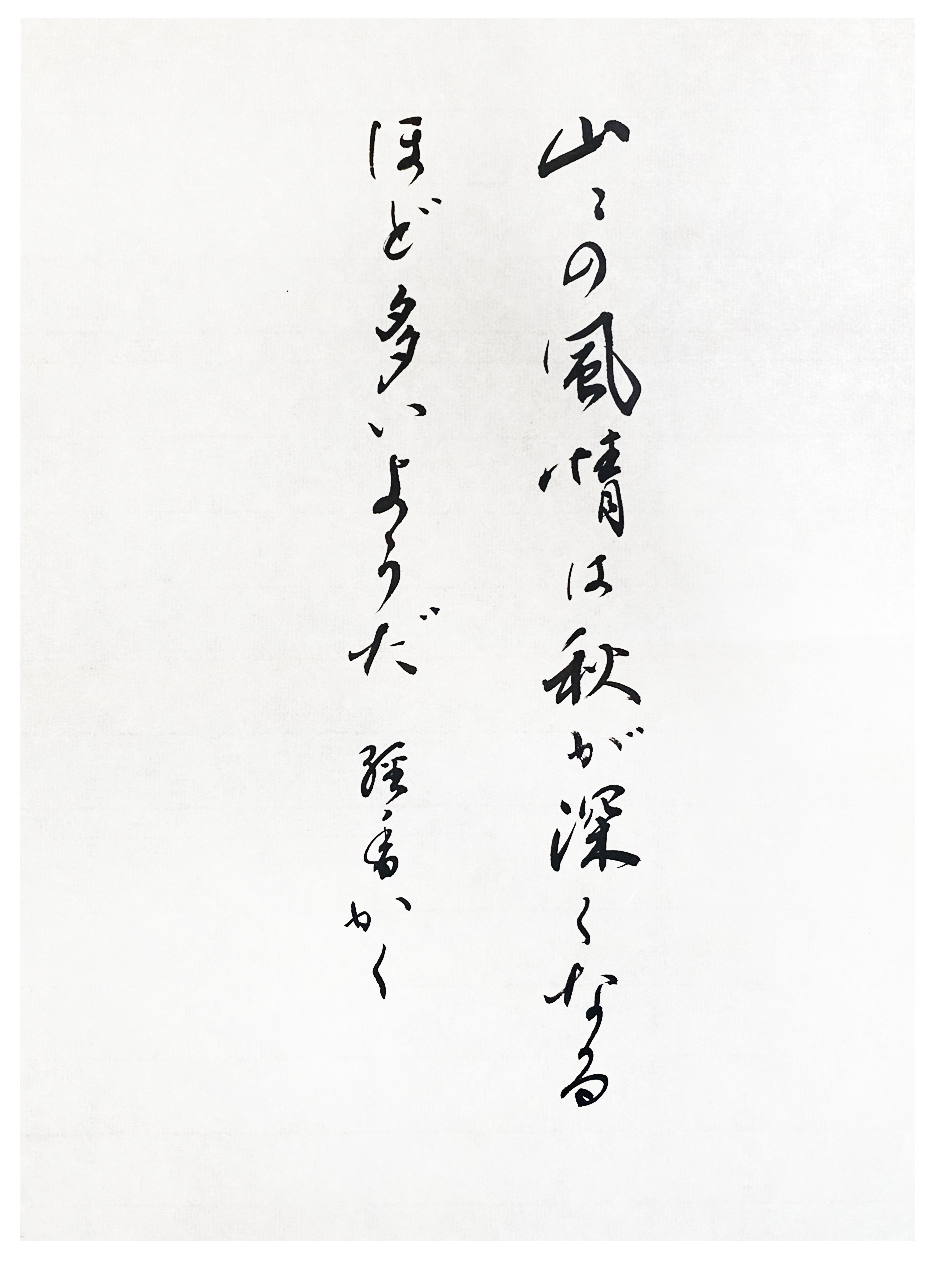 山々の風情は秋が深くなる
ほど多いようだ 経香かく